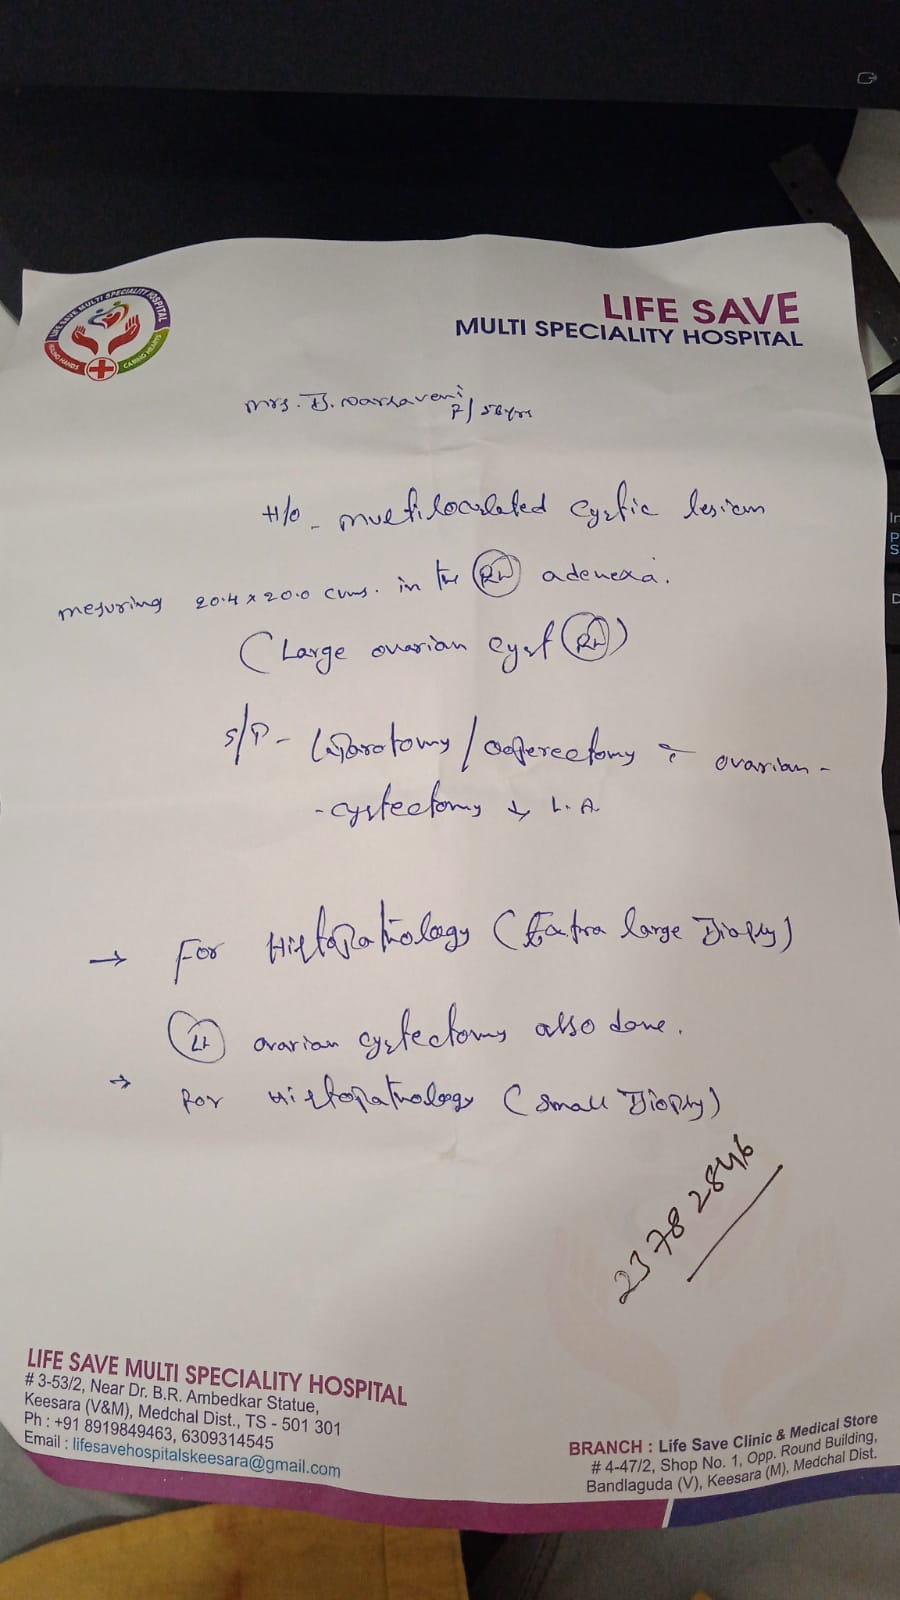 LIFE SAVE MULTI SPECIALITY HOSPITAL
CARING HEARTS
LIFE SAVE
MULTI SPECIALITY HOSPITAL
Mrs. B. Narsaveni
F/ 56yrs
H/o - multiloculated cystic lesion
mesuring 20.4 x 20.0 cms. in the Rt adenexa.
(Large ovarian cyst Rt)
S/P - Laparotomy / oopherectomy c ovarian -
- cystectomy ↓ L.A.
→ For Histopathology (Extra large Biopsy)
Lt ovarian cystectomy also done.
→ For Histopathology (Small Biopsy)
23782846
LIFE SAVE MULTI SPECIALITY HOSPITAL
# 3-53/2, Near Dr. B.R. Ambedkar Statue,
Keesara (V&M), Medchal Dist., TS - 501 301
Ph : +91 8919849463, 6309314545
Email : lifesavehospitalskeesara@gmail.com
BRANCH : Life Save Clinic & Medical Store
# 4-47/2, Shop No. 1, Opp. Round Building,
Bandlaguda (V), Keesara (M), Medchal Dist.